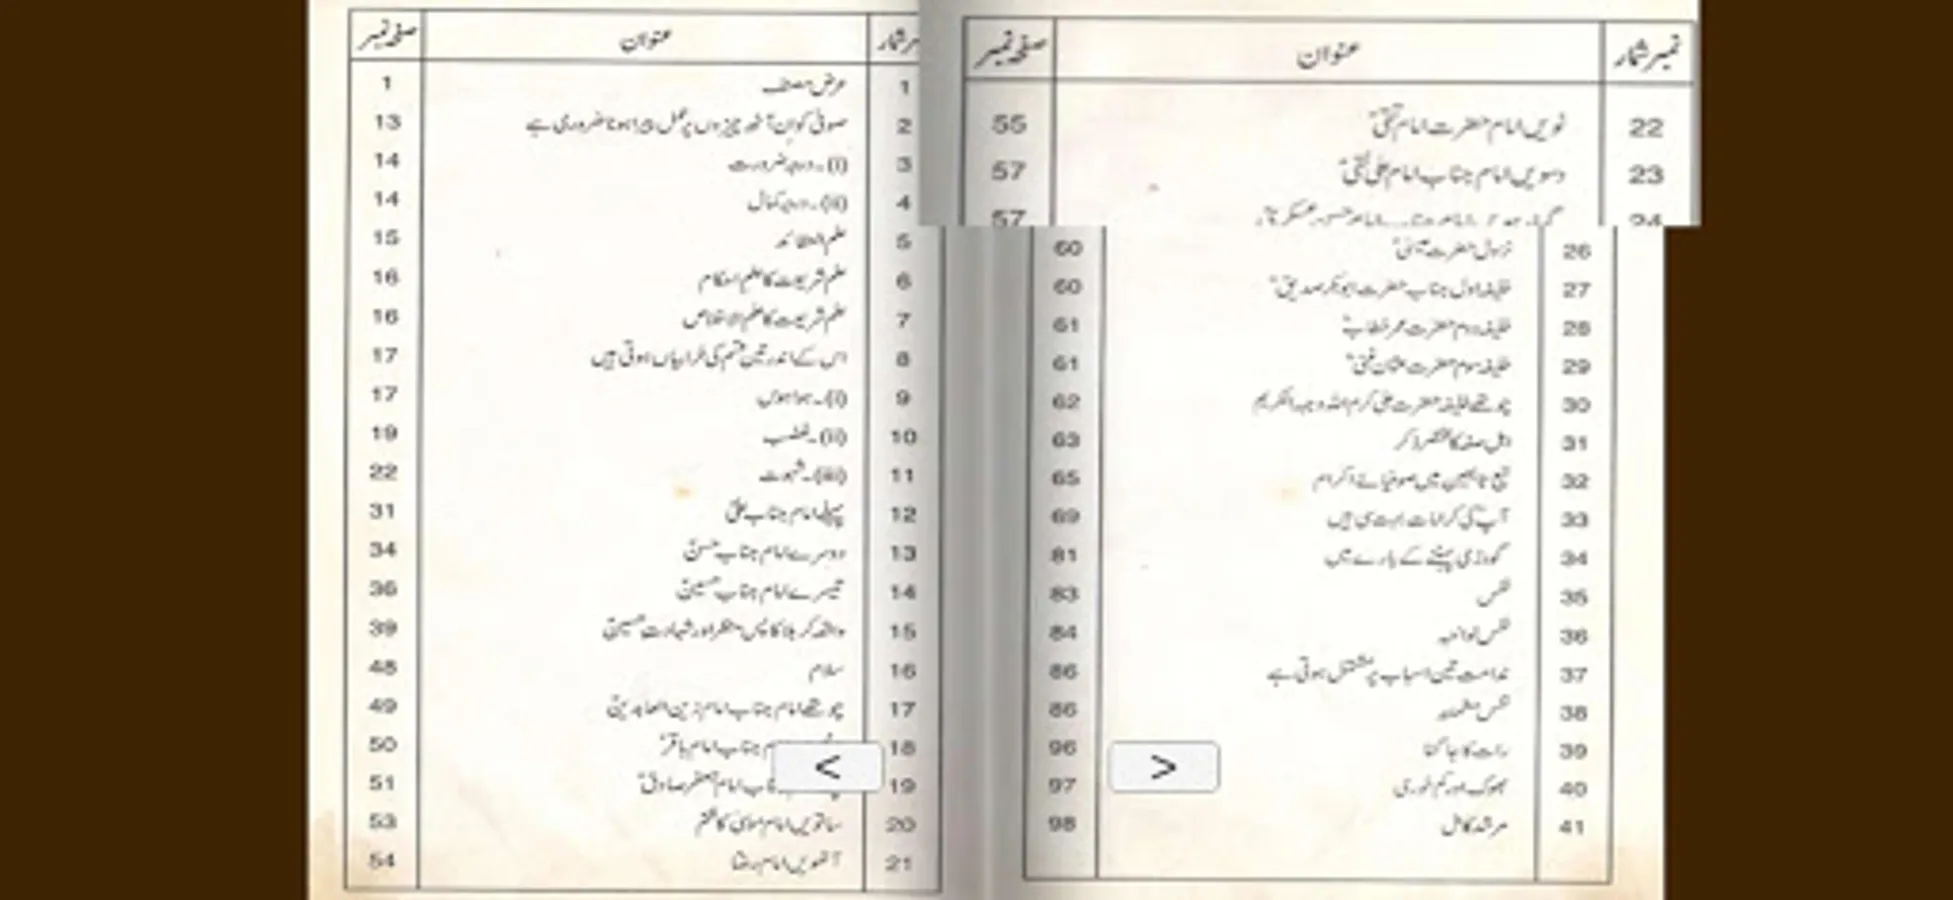 نمبر شمار عنوان صفحہ نمبر
22 نویں امام حضرت امام تقیؑ 55
23 دسویں امام جناب امام علی نقیؑ 57
24 57
26 نزول حضرت عیسیٰؑ 60
27 خلیفہ اول جناب حضرت ابوبکر صدیقؓ 60
28 خلیفہ دوم حضرت عمر خطابؓ 61
29 خلیفہ سوم حضرت عثمان غنیؓ 61
30 چوتھے خلیفہ حضرت علی کرم اللہ وجہہ الکریم 62
31 اہل صفہ کا مختصر ذکر 63
32 تبع تابعین میں صوفیائے اکرام 65
33 آپؓ کی کرامات بہت سی ہیں 69
34 گودڑی پہننے کے بارے میں 81
35 نفس 83
36 نفس لوامہ 84
37 ندامت تین اسباب پر مشتمل ہوتی ہے 86
38 نفس مطمئنہ 86
39 رات کا جاگنا 96
40 بھوک اور کم خوری 97
41 مرشد کامل 98
>
شمار عنوان صفحہ نمبر
1 عرض مصنف 1
2 صوفی کو ان آٹھ چیزوں پر عمل پیرا ہونا ضروری ہے 13
3 (i)۔ درجہ ضرورت 14
4 (ii)۔ درجہ کمال 14
5 علم العقائد 15
6 علم شریعت کا علم احکام 16
7 علم شریعت کا علم الاخلاص 16
8 اس کے اندر تین قسم کی خرابیاں ہوتی ہیں 17
9 (i)۔ ہوا ہوس 17
10 (ii)۔ غضب 19
11 (iii)۔ شہوت 22
12 پہلے امام جناب علیؑ 31
13 دوسرے امام جناب حسنؑ 34
14 تیسرے امام جناب حسینؑ 36
15 واقعہ کربلا کا پس منظر اور شہادت حسینؑ 39
16 سلام 48
17 چوتھے امام جناب امام زین العابدینؑ 49
18 جناب امام باقرؑ 50
19 جناب امام جعفر صادقؑ 51
20 ساتویں امام موسیٰ کاظمؑ 53
21 آٹھویں امام رضاؑ 54
<